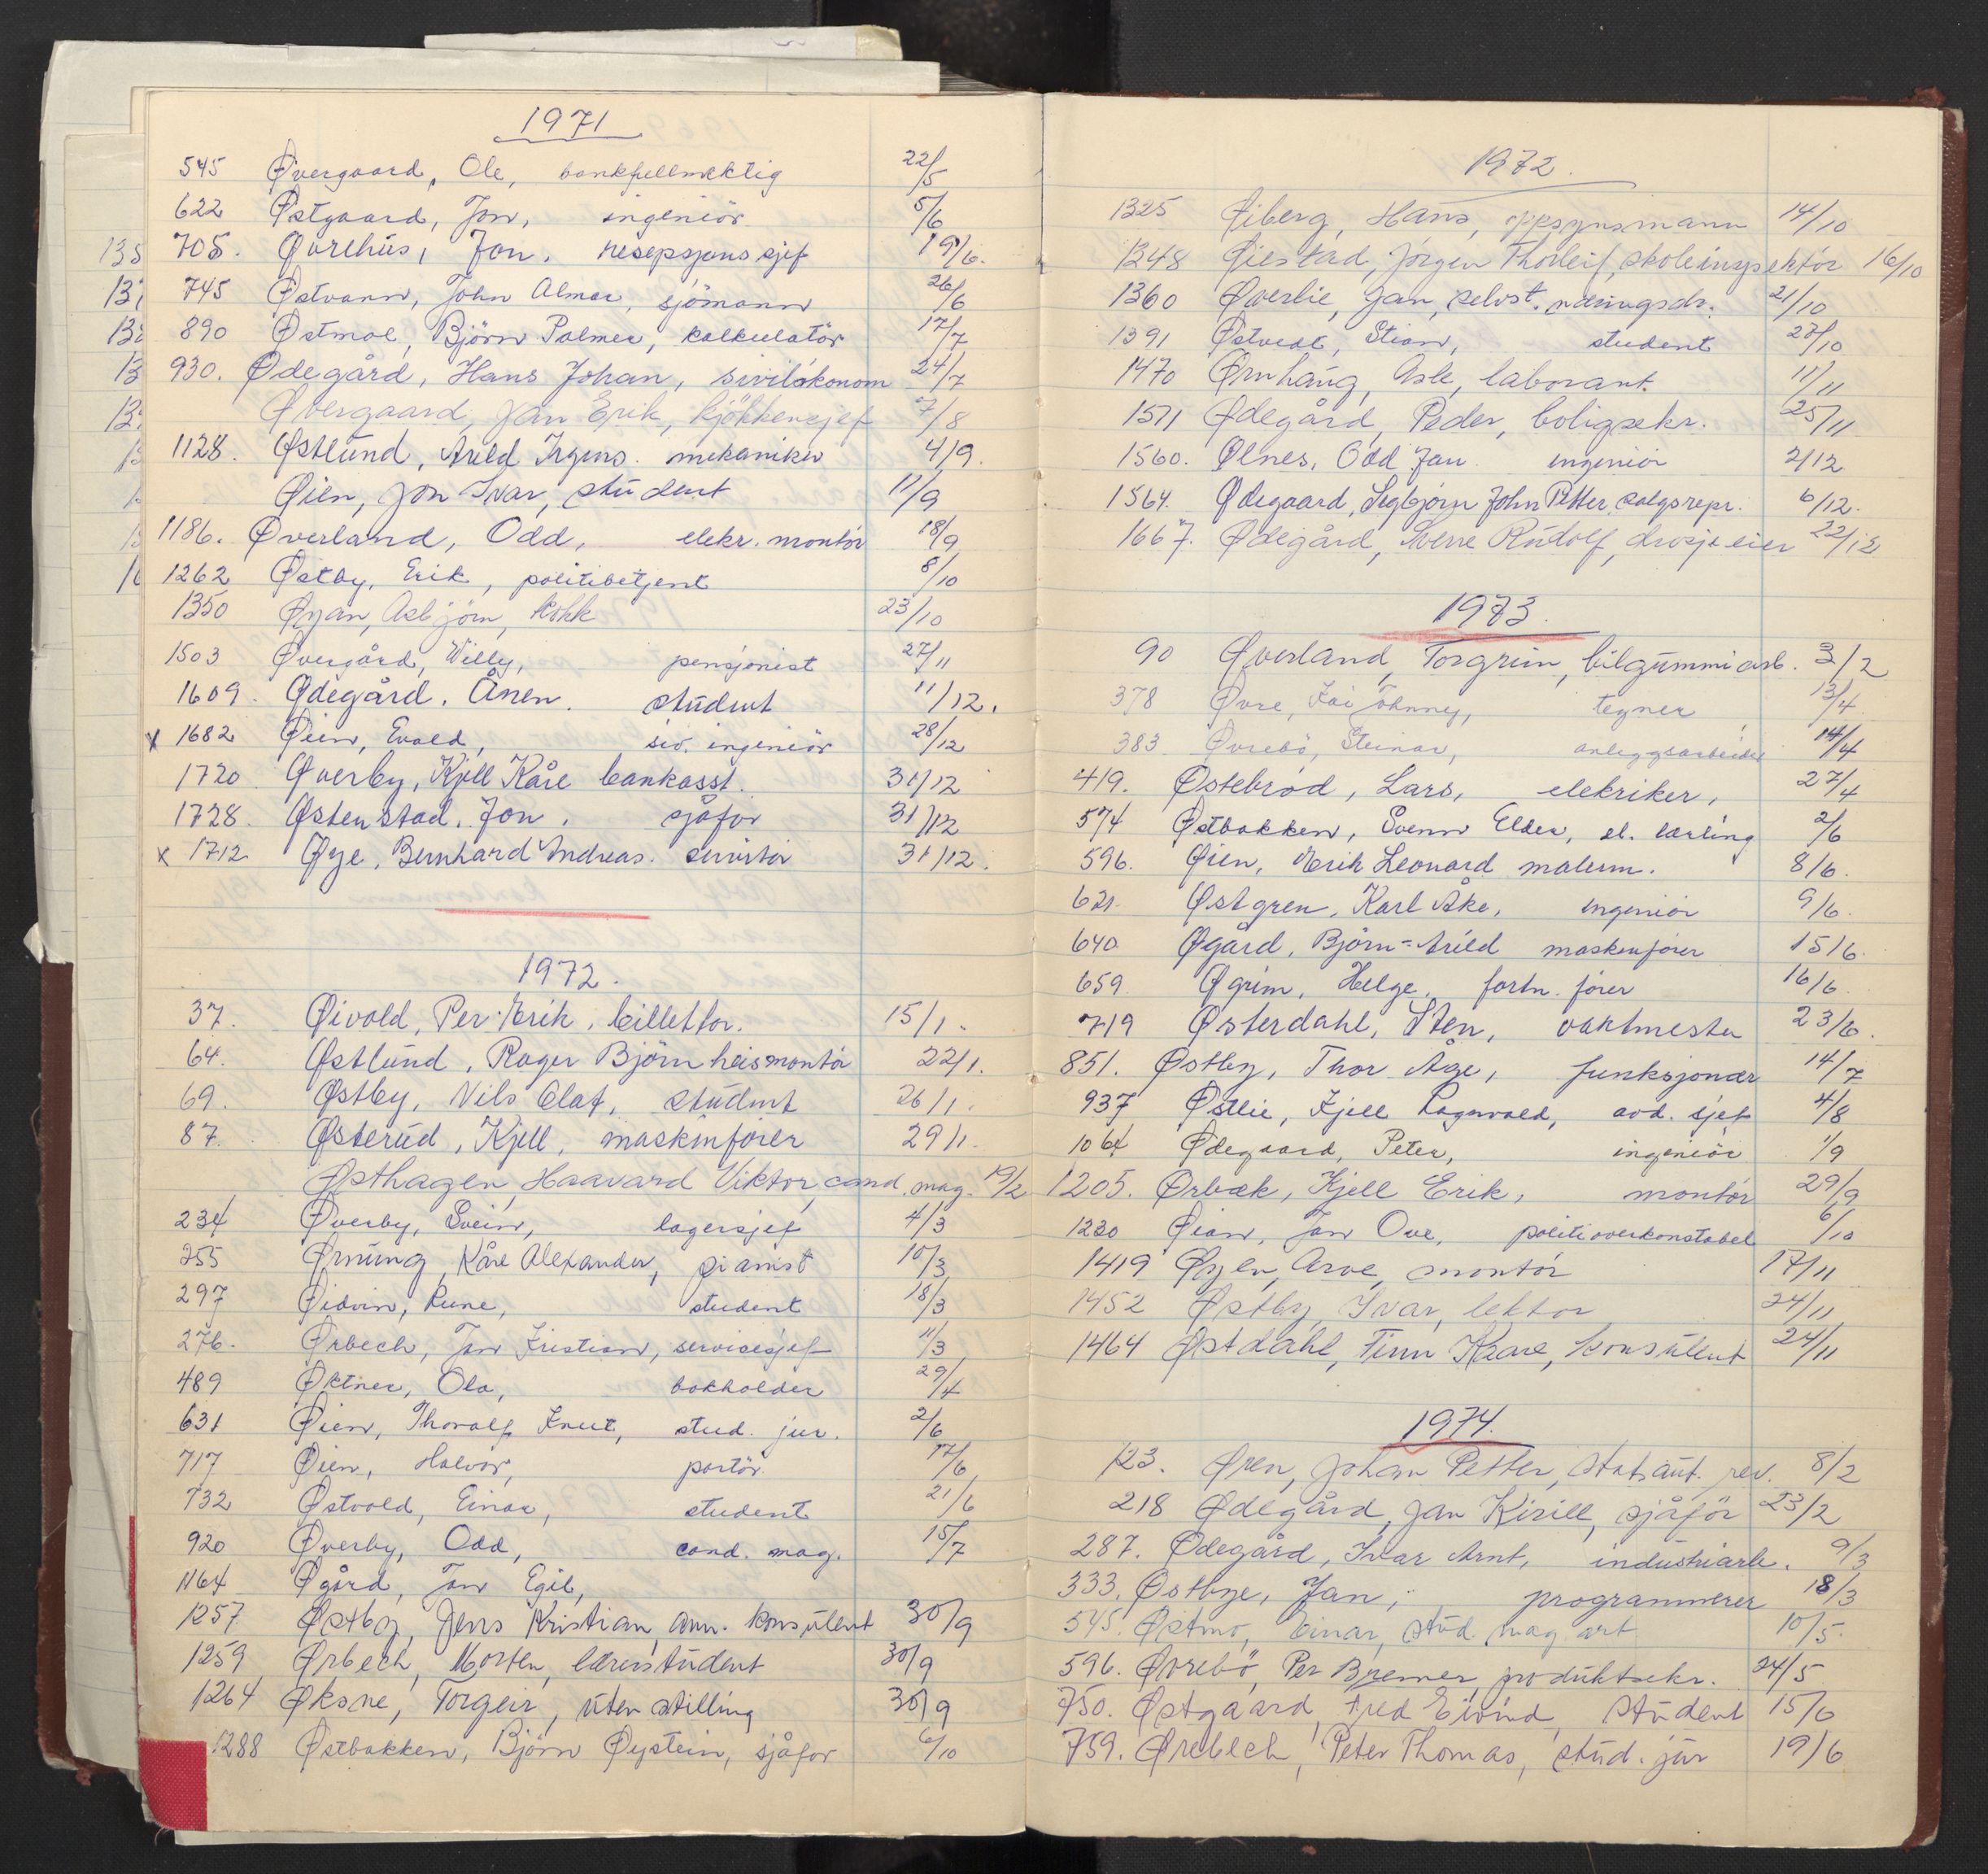 1971
545 Øvergaard, Ole, bankfullmektig 22/5
622 Østgaard, Jon, ingeniör 5/6
705. Øvrehus, Jon. resepsjonssjef 19/6.
745 Østvann, John Almar, sjömann 26/6
890 Østmoe, Björn Palmer, kalkulatör 17/7
930. Ødegård, Hans Johan, siviløkonom 24/7
Øvergaard, Jan Erik, kjökkensjef 7/8
1128. Østlund, Arild Irgens. mekaniker 4/9.
Øien, Jon Ivar, student 11/9
1186. Øverland, Odd, elekr. montör 18/9
1262 Østby, Erik, politibetjent 8/10
1350 Øyan, Asbjörn, kokk 23/10
1503 Øvergård, Willy, pensjonist 27/11
1609. Ødegård. Ånen. student 11/12.
x 1682 Øien, Evald, siv. ingeniör 28/12
1720 Øverby, Kjell Kåre bankasst. 31/12
1728. Østenstad. Jon. sjåför 31/12
x 1712 Øye, Bernhard Andreas. servitör 31/12.
1972.
37. Øivold, Per-Erik. billettör. 15/1.
64. Østlund, Roger Björn heismontör 22/1.
69. Østby, Nils Olaf, student 26/1.
87. Østerud, Kjell, maskinförer 29/1.
Østhagen, Haavard Viktor, cand. mag. 19/2
234 Øverby, Svein, lagersjef 4/3
255 Ørnung, Kåre Alexander, pianist 10/3
297 Øidvin, Rune, student 18/3
276. Ørbech, Jan Kristian, servicesjef 11/3
489 Øktner, Ola, bokholder 29/4
631 Øien, Thoralf Knut, stud. jur. 2/6
717 Øien, Halvor, portör 17/6
732 Østvold, Einar, student 21/6
920 Øverby, Odd, cand. mag. 15/7
1164 Øgård, Jan Egil,
1257 Østby, Jens Kristian, ann. konsulent 30/9
1259 Ørbech, Morten, lærerstudent 30/9
1264 Øksne, Torgeir, uten stilling 30/9
1288 Østbakken, Björn Øystein, sjåför 6/10
1972.
1325 Øiberg, Hans, oppsynsmann 14/10
1348 Øiestad, Jörgen Thorleif, skoleinspektör 16/10
1360 Øverlie, Jan, selvst. næringsdr. 21/10
1391 Østvedt, Stian, student 27/10
1470 Ørnhaug, Asle, laborant. 11/11
1511 Ødegård, Peder, boligsekr. 25/11
1560. Ølnes, Odd Jan ingeniör 2/12
1564. Ødegaard, Segbjörn John Petter, salgsrepr. 6/12.
1667. Ødegård, Sverre Rudolf, drosjeeier 22/12
1973.
90 Øverland, Torgrim, bilgummiarb. 3/2
378 Øvre, Kai Johnny, tegner 13/4
383. Øvrebö, Steinar, anleggsarbeider 14/4
419. Østebröd, Lars, elekriker, 27/4
574 Østbakken, Svenn Elder, el. lærling 2/6
596. Øien, Erik Leonard malerm. 8/6.
621. Østgren, Karl Åke, ingeniör 9/6.
640. Øgård, Björn-Arild maskinförer 15/6.
659. Øgrim, Helge, fortn. förer 16/6.
719 Østerdahl, Sten, vaktmester 23/6.
851. Østby, Thor Åge, funksjonær 14/7
937 Østlie, Kjell Ragnvald, avd. sjef 4/8
1064 Ødegaard, Peter, ingeniör 1/9
1205. Ørbæk, Kjell Erik, montör 29/9
1220 Øian, Jan Ove, politioverkonstabel 6/10
1419 Øyen, Arve, montör 17/11
1452 Østby, Ivar, lektor 24/11
1464 Østdahl, Finn Kaare, konsulent 24/11
1974.
123. Øren, Johan Petter, statsaut. rev. 8/2
218 Ødegård, Jan Kirill, sjåför 23/2
287. Ødegård, Ivar Arnt, industriarb. 9/3
333. Østbye, Jan, programmerer 18/3
545. Østmo, Einar, stud. mag. art 10/5.
596. Øvrebö, Per Bremer, produktsekr. 24/5
750. Østgaard, Fred Eivind, student 15/6
759. Ørebech, Peter Thomas, stud. jur 19/6